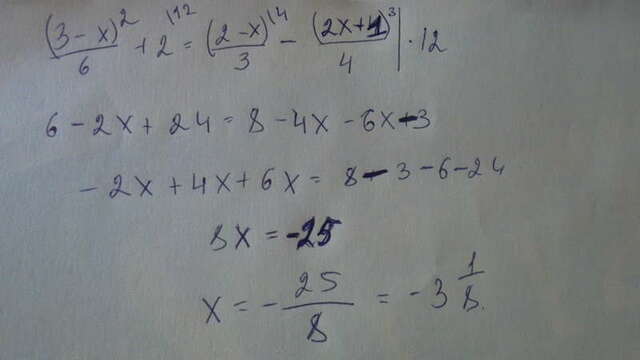 (3 - x)^2/6 + 2^|12 = (2 - x)^|4/3 - (2x + 1)^3/4 | · 12
6 - 2x + 24 = 8 - 4x - 6x - 3
- 2x + 4x + 6x = 8 - 3 - 6 - 24
8x = -25
x = - 25/8 = - 3 1/8.